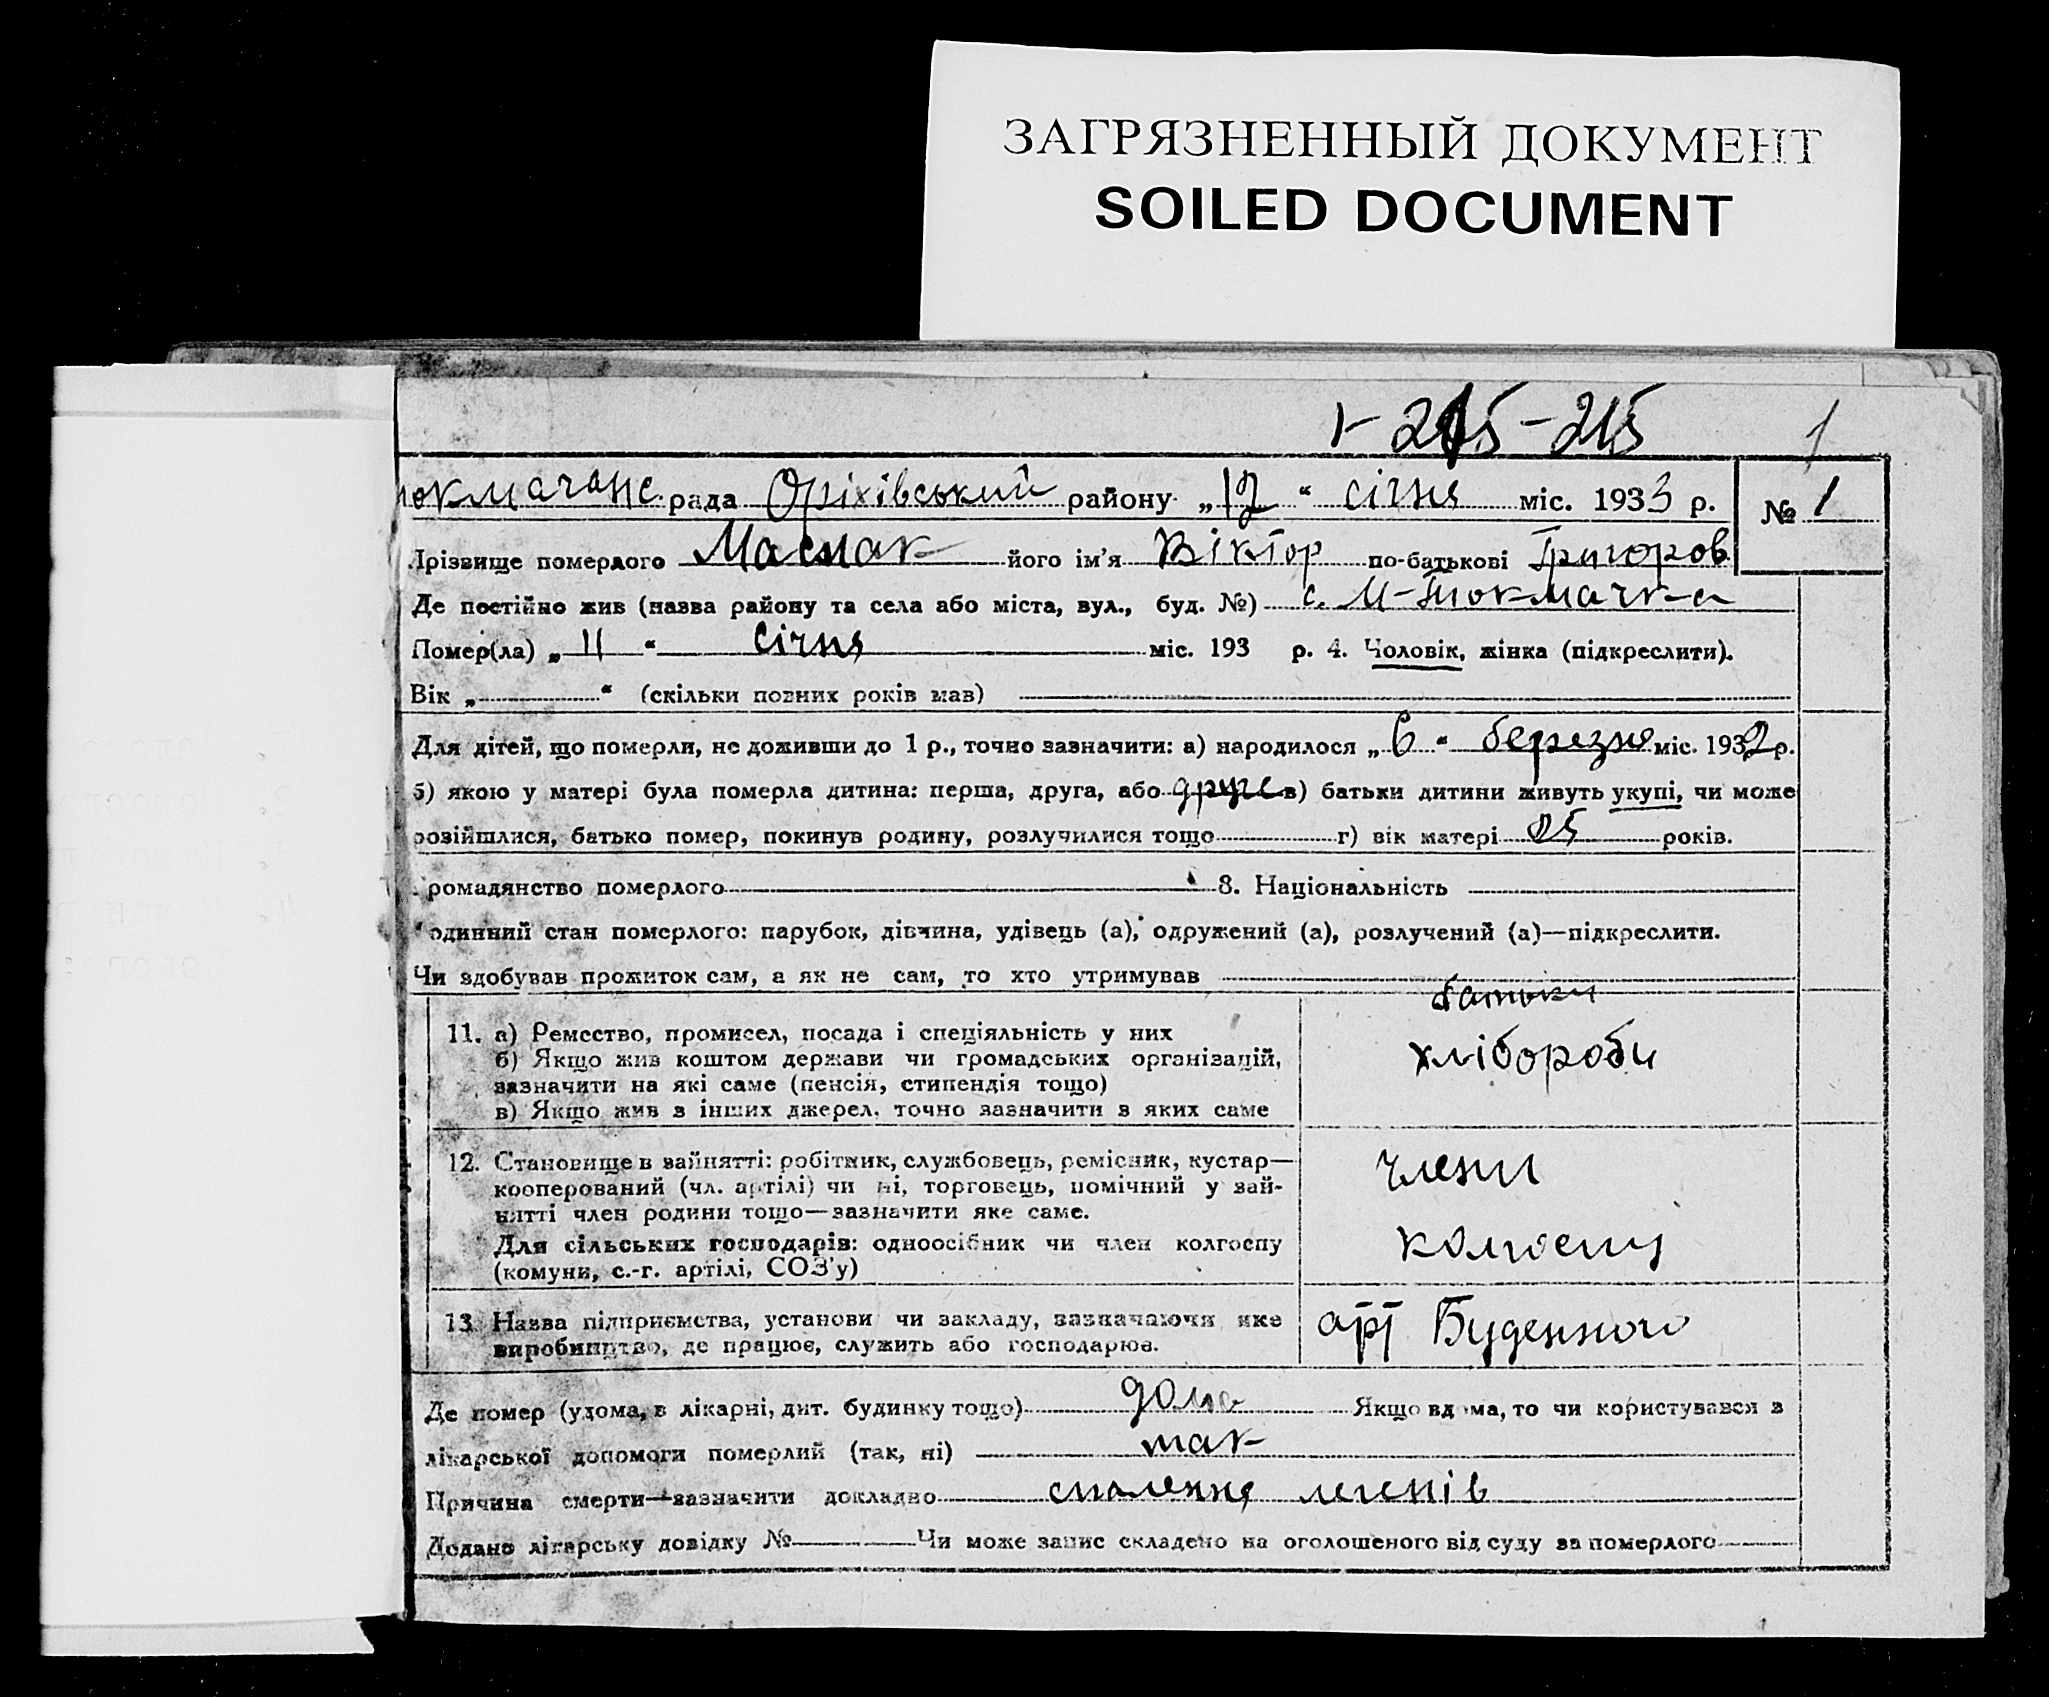 ЗАГРЯЗНЕННЫЙ ДОКУМЕНТ
SOILED DOCUMENT
1-215-215
1
токмачанс. рада Оріхівський району „12“ січня міс. 1933 р. № 1
Прізвище померлого Маслак його ім'я Віктор по-батькові Григоров
Де постійно жив (назва району та села або міста, вул., буд. №) с. М-Токмачка
Помер(ла) „11“ січня міс. 193 р. 4. Чоловік, жінка (підкреслити).
Вік „ “ (скільки повних років мав)
Для дітей, що померли, не доживши до 1 р., точно зазначити: а) народилося „6“ березня міс. 1932 р.
б) якою у матері була померла дитина: перша, друга, або друге в) батьки дитини живуть укупі, чи може
розійшлися, батько помер, покинув родину, розлучилися тощо г) вік матері 25 років.
ромадянство померлого 8. Національність
одинний стан померлого: парубок, дівчина, удівець (а), одружений (а), розлучений (а)—підкреслити.
Чи здобував прожиток сам, а як не сам, то хто утримував
батьки
11. а) Ремество, промисел, посада і спеціяльність у них
хлібороби
б) Якщо жив коштом держави чи громадських організацій,
зазначити на які саме (пенсія, стипендія тощо)
в) Якщо жив з інших джерел, точно зазначити з яких саме
12. Становище в зайнятті: робітник, службовець, ремісник, кустар—
члени
кооперований (чл. артілі) чи ні, торговець, помічний у зай-
нятті член родини тощо—зазначити яке саме.
Для сільських господарів: одноосібник чи член колгоспу
колгоспу
(комуни, с.-г. артілі, СОЗ'у)
13. Назва підприємства, установи чи закладу, зазначаючи яке
арт Буденного
виробництво, де працює, служить або господарює.
Де помер (удома, в лікарні, дит. будинку тощо) дома Якщо вдома, то чи користувався з
лікарської допомоги померлий (так, ні) так
Причина смерти—зазначити докладно спалення легенів
Додано лікарську довідку № Чи може запис складено на оголошеного від суду за померлого